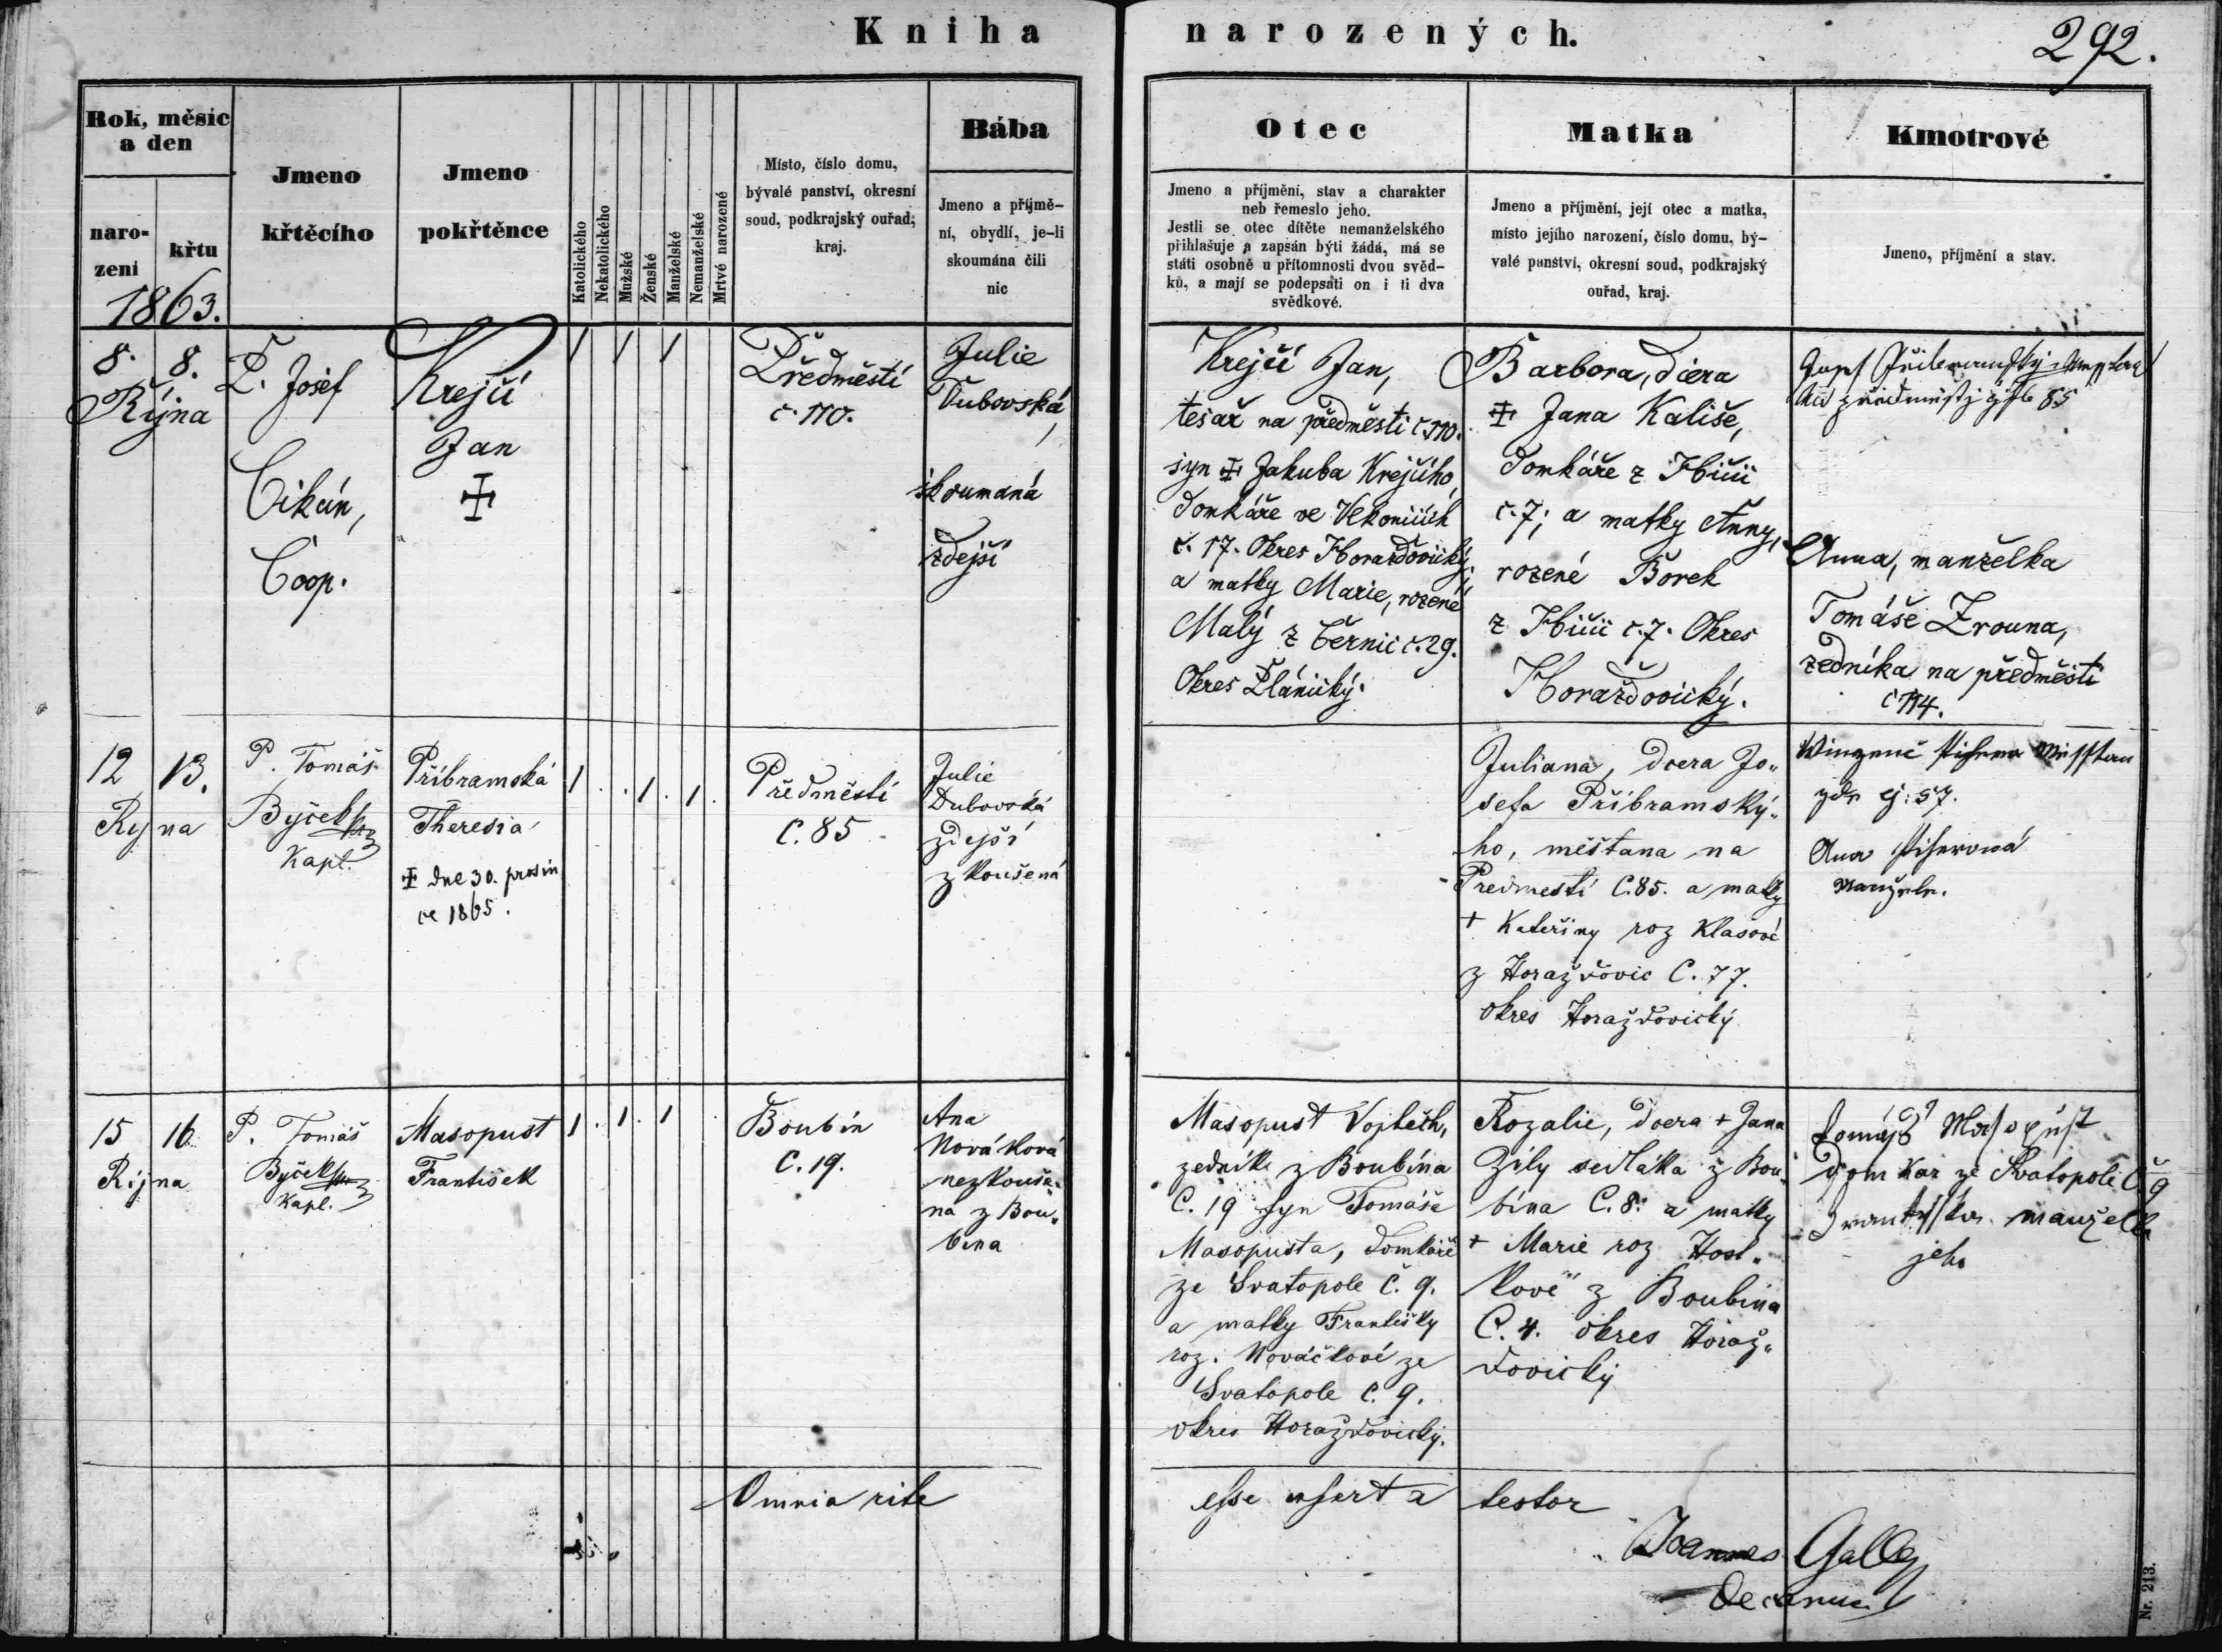 Kniha narozených.
292.
Rok, měsíc
a den
naro-
zeni
křtu
1863.
Jmeno
křtěcího
Jmeno
pokřtěnce
Katolického
Nekatolického
Mužské
Ženské
Manželské
Nemanželské
Mrtvé narozené
Místo, číslo domu,
bývalé panství, okresní
soud, podkrajský ouřad,
kraj.
Bába
Jmeno a příjmě-
ní, obydlí, je-li
skoumána čili
nic
Otec
Jmeno a příjmění, stav a charakter
neb řemeslo jeho.
Jestli se otec dítěte nemanželského
přihlašuje a zapsán býti žádá, má se
státi osobně u přítomnosti dvou svěd-
ků, a mají se podepsáti on i ti dva
svědkové.
Matka
Jmeno a příjmění, její otec a matka,
místo jejího narození, číslo domu, bý-
valé panství, okresní soud, podkrajský
ouřad, kraj.
Kmotrové
Jmeno, příjmění a stav.
8. 8.
Října
P. Josef
Cikán,
Coop.
Krejčí
Jan
Předměstí
č. 110.
Julie
Dubovská,
skoumaná
zdejší
Krejčí Jan,
tesař na předměstí č. 110.
syn Jakuba Krejčího,
domkáře ve Velkonicích
č. 17. Okres Horažďovický;
a matky Marie, rozené
Malý z Černic č. 29.
Okres Plánický.
Barbora, dcera
Jana Kališe,
domkáře z Hbičíc
č. 7; a matky Anny,
rozené Borek
z Hbičíc č. 7. Okres
Horažďovický.
85
Anna, manželka
Tomáše Zrouna,
zedníka na předměstí
č 114.
12 13.
Ryjna
P. Tomáš
Byček
Kapl.
Příbramská
Theresia
dne 30. prosin
ce 1865.
Předměstí
C. 85
Julie
Dubovská
zdejší
zkoušená
Juliana, dcera Jo„
sefa Příbramský„
ho, měštana na
Předmestí C. 85. a matky
+ Kateřiny roz Klasové
z Horažďovic C. 77.
okres Horaždovický
57.
15 16
Ryjna
P. Tomáš
Byček
Kapl.
Masopust
František
Boubín
C. 19.
Ana
Nováková
nezkouše„
na z Bou„
bína
Masopust Vojtěch,
zedník z Boubína
C. 19 syn Tomáše
Masopusta, domkáře
ze Svatopole Č. 9.
a matky Františky
roz. Nováčkové ze
Svatopole C. 9.
okres Horažďovický.
Rozalie, dcera + Jana
Zíly sedláka z Bou„
bína C. 8. a matky
+ Marie roz Host„
kové z Boubína
C. 4. okres Horaž„
dovický
Tomáš Masopust
domkař ze Svatopole Č. 9
manželka
jeho
Omnia rite
testor
Joannes Galley
Decanus
Nr. 213.